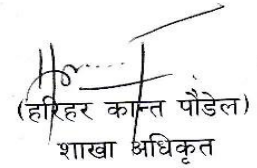 (हरिहर कान्त पौडेल)
शाखा अधिकृत